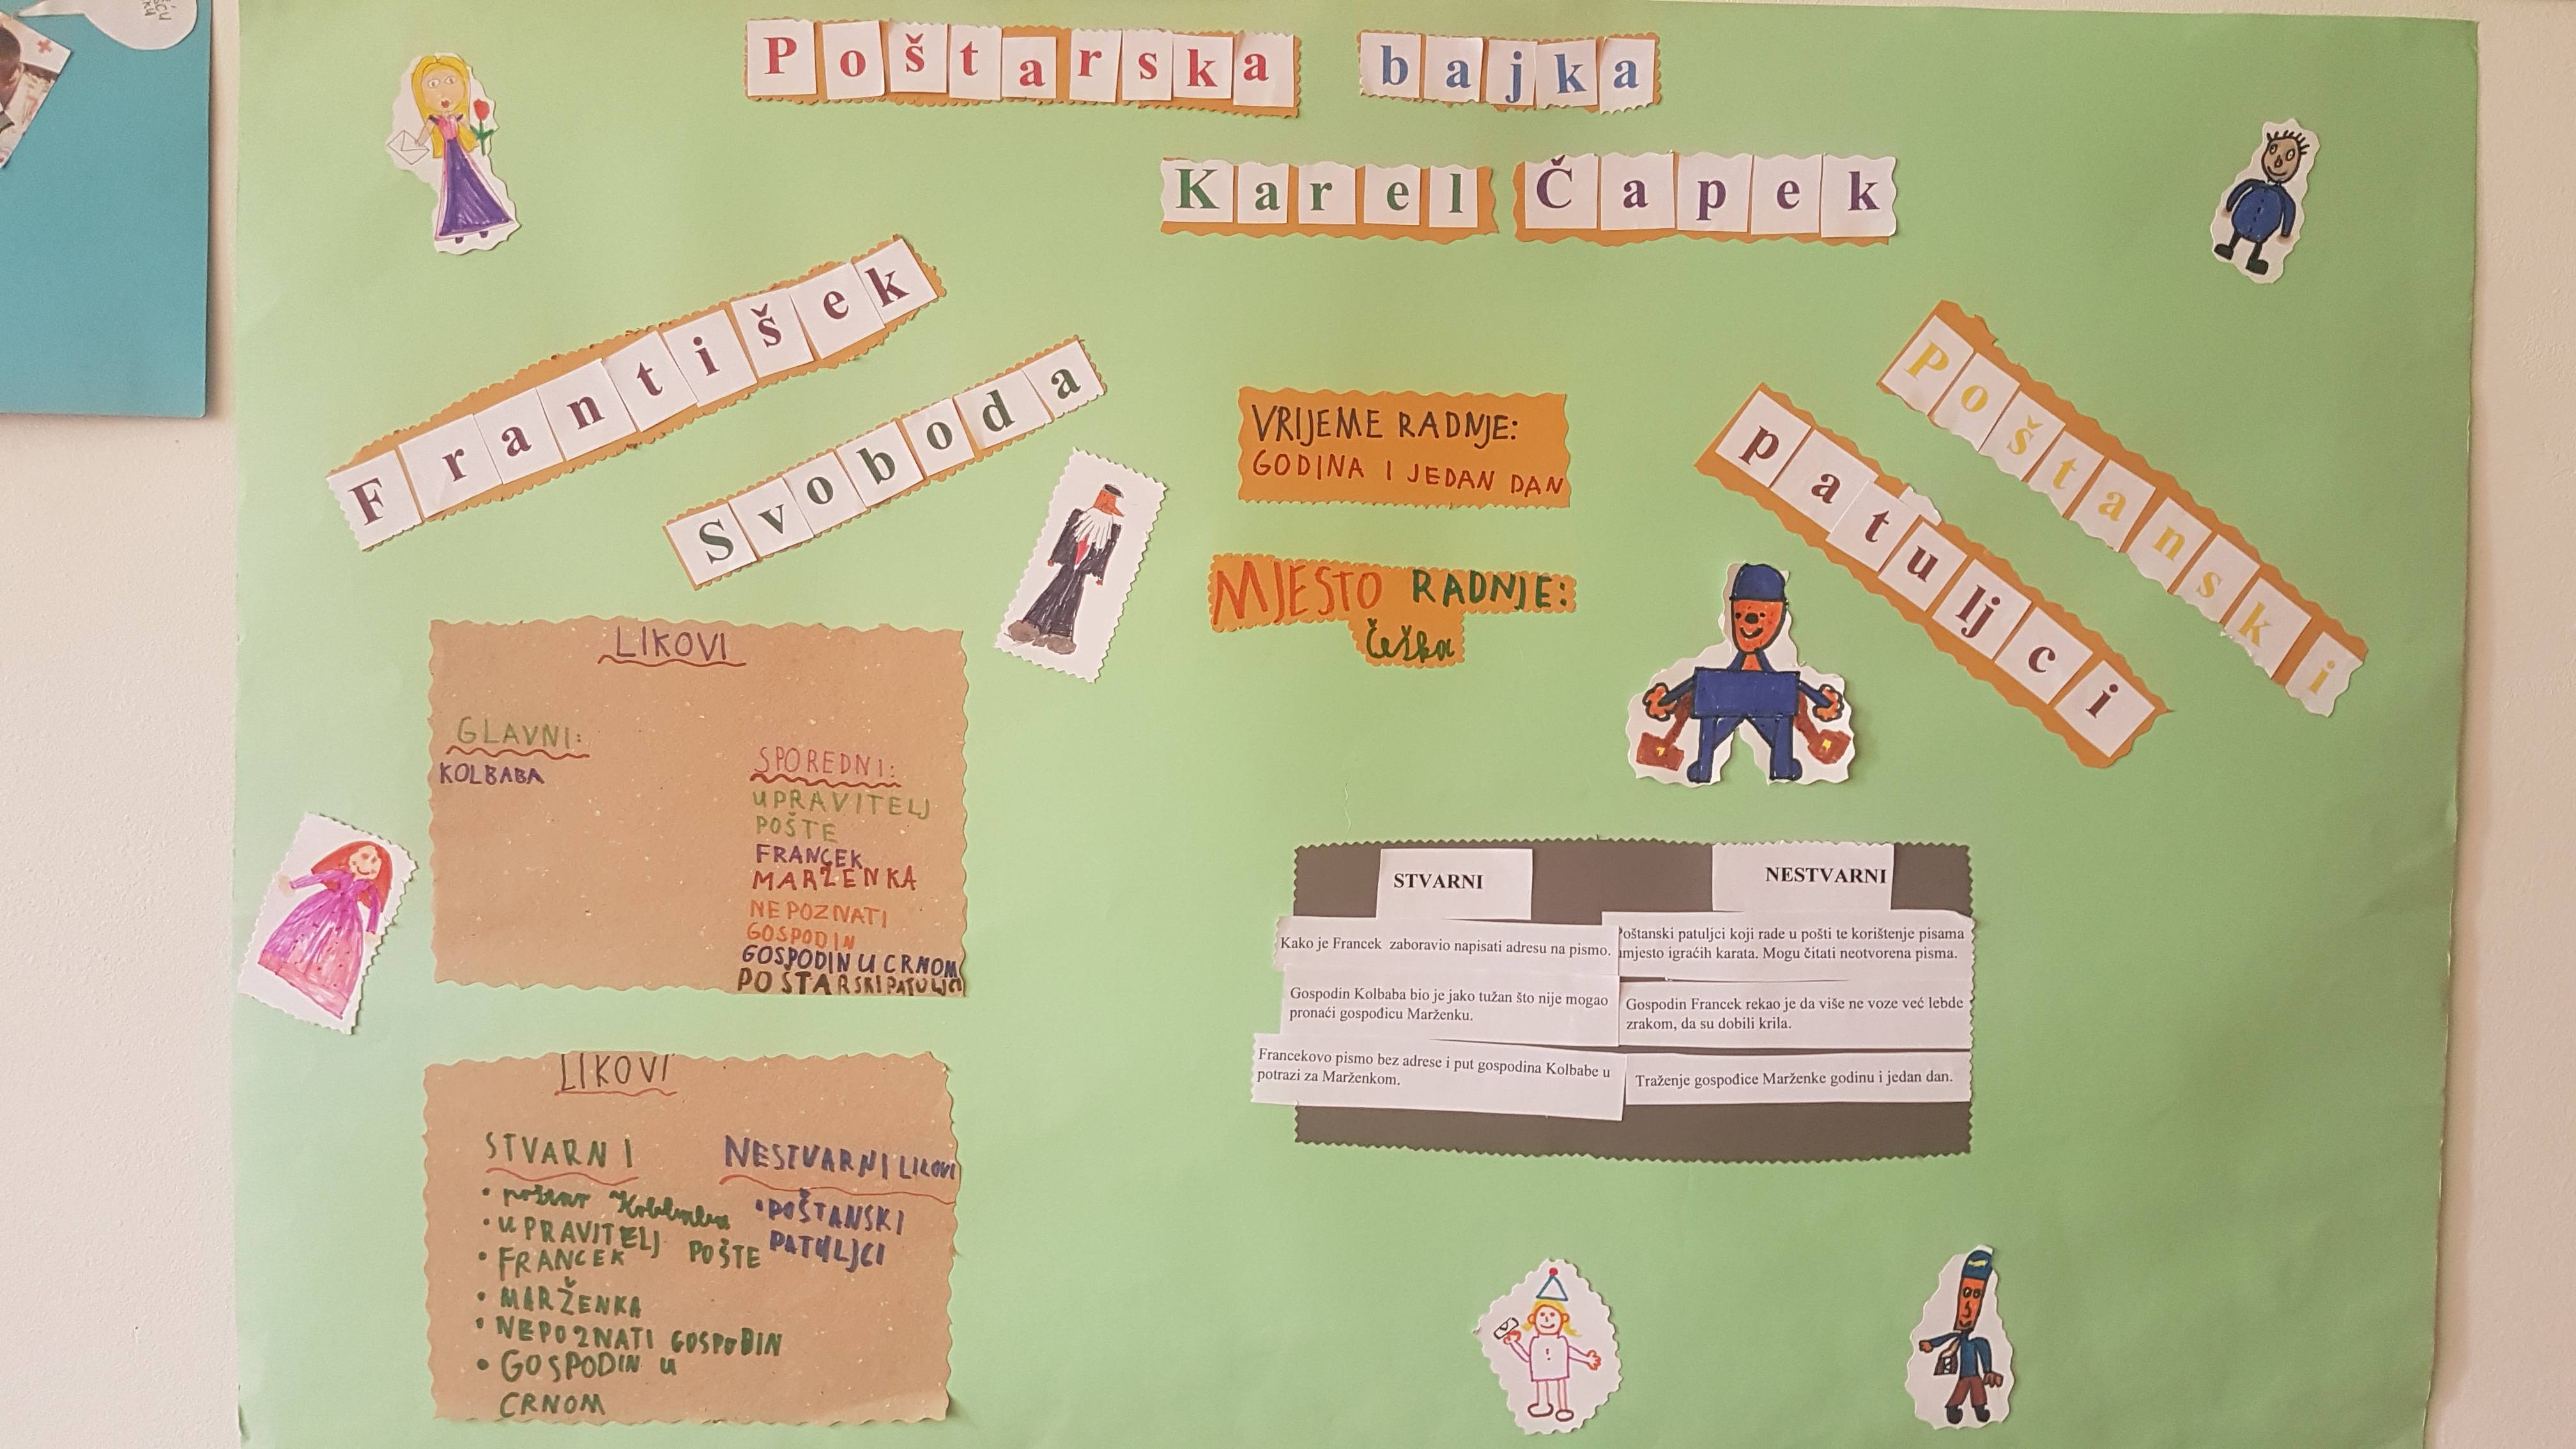 Poštarska bajka
Karel Čapek
František
Svoboda
Poštanski
patuljci
VRIJEME RADNJE:
GODINA I JEDAN DAN
MJESTO RADNJE:
Češka
LIKOVI
GLAVNI:
KOLBABA
SPOREDNI:
UPRAVITELJ
POŠTE
FRANCEK
MARŽENKA
NEPOZNATI
GOSPODIN
GOSPODIN U CRNOM
POŠTARSKI PATULJCI
STVARNI
Kako je Francek zaboravio napisati adresu na pismo.
Gospodin Kolbaba bio je jako tužan što nije mogao
pronaći gospođicu Marženku.
Francekovo pismo bez adrese i put gospodina Kolbabe u
potrazi za Marženkom.
NESTVARNI
oštanski patuljci koji rade u pošti te korištenje pisama
mjesto igraćih karata. Mogu čitati neotvorena pisma.
Gospodin Francek rekao je da više ne voze već lebde
zrakom, da su dobili krila.
Traženje gospođice Marženke godinu i jedan dan.
LIKOVI
STVARNI
• poštar Kolbaba
• UPRAVITELJ POŠTE
• FRANCEK
• MARŽENKA
• NEPOZNATI GOSPODIN
• GOSPODIN U
CRNOM
NESTVARNI LIKOVI
• POŠTANSKI
PATULJCI